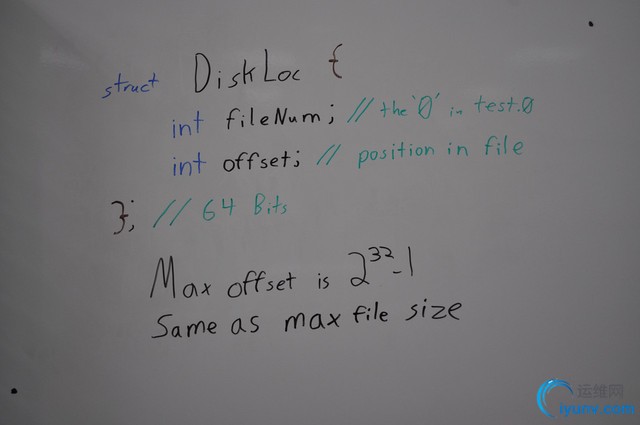 struct DiskLoc {
int fileNum; // the '0' in test.0
int offset; // position in file
}; // 64 Bits
Max offset is 2^32-1
Same as max file size
运维网
iyunv.com